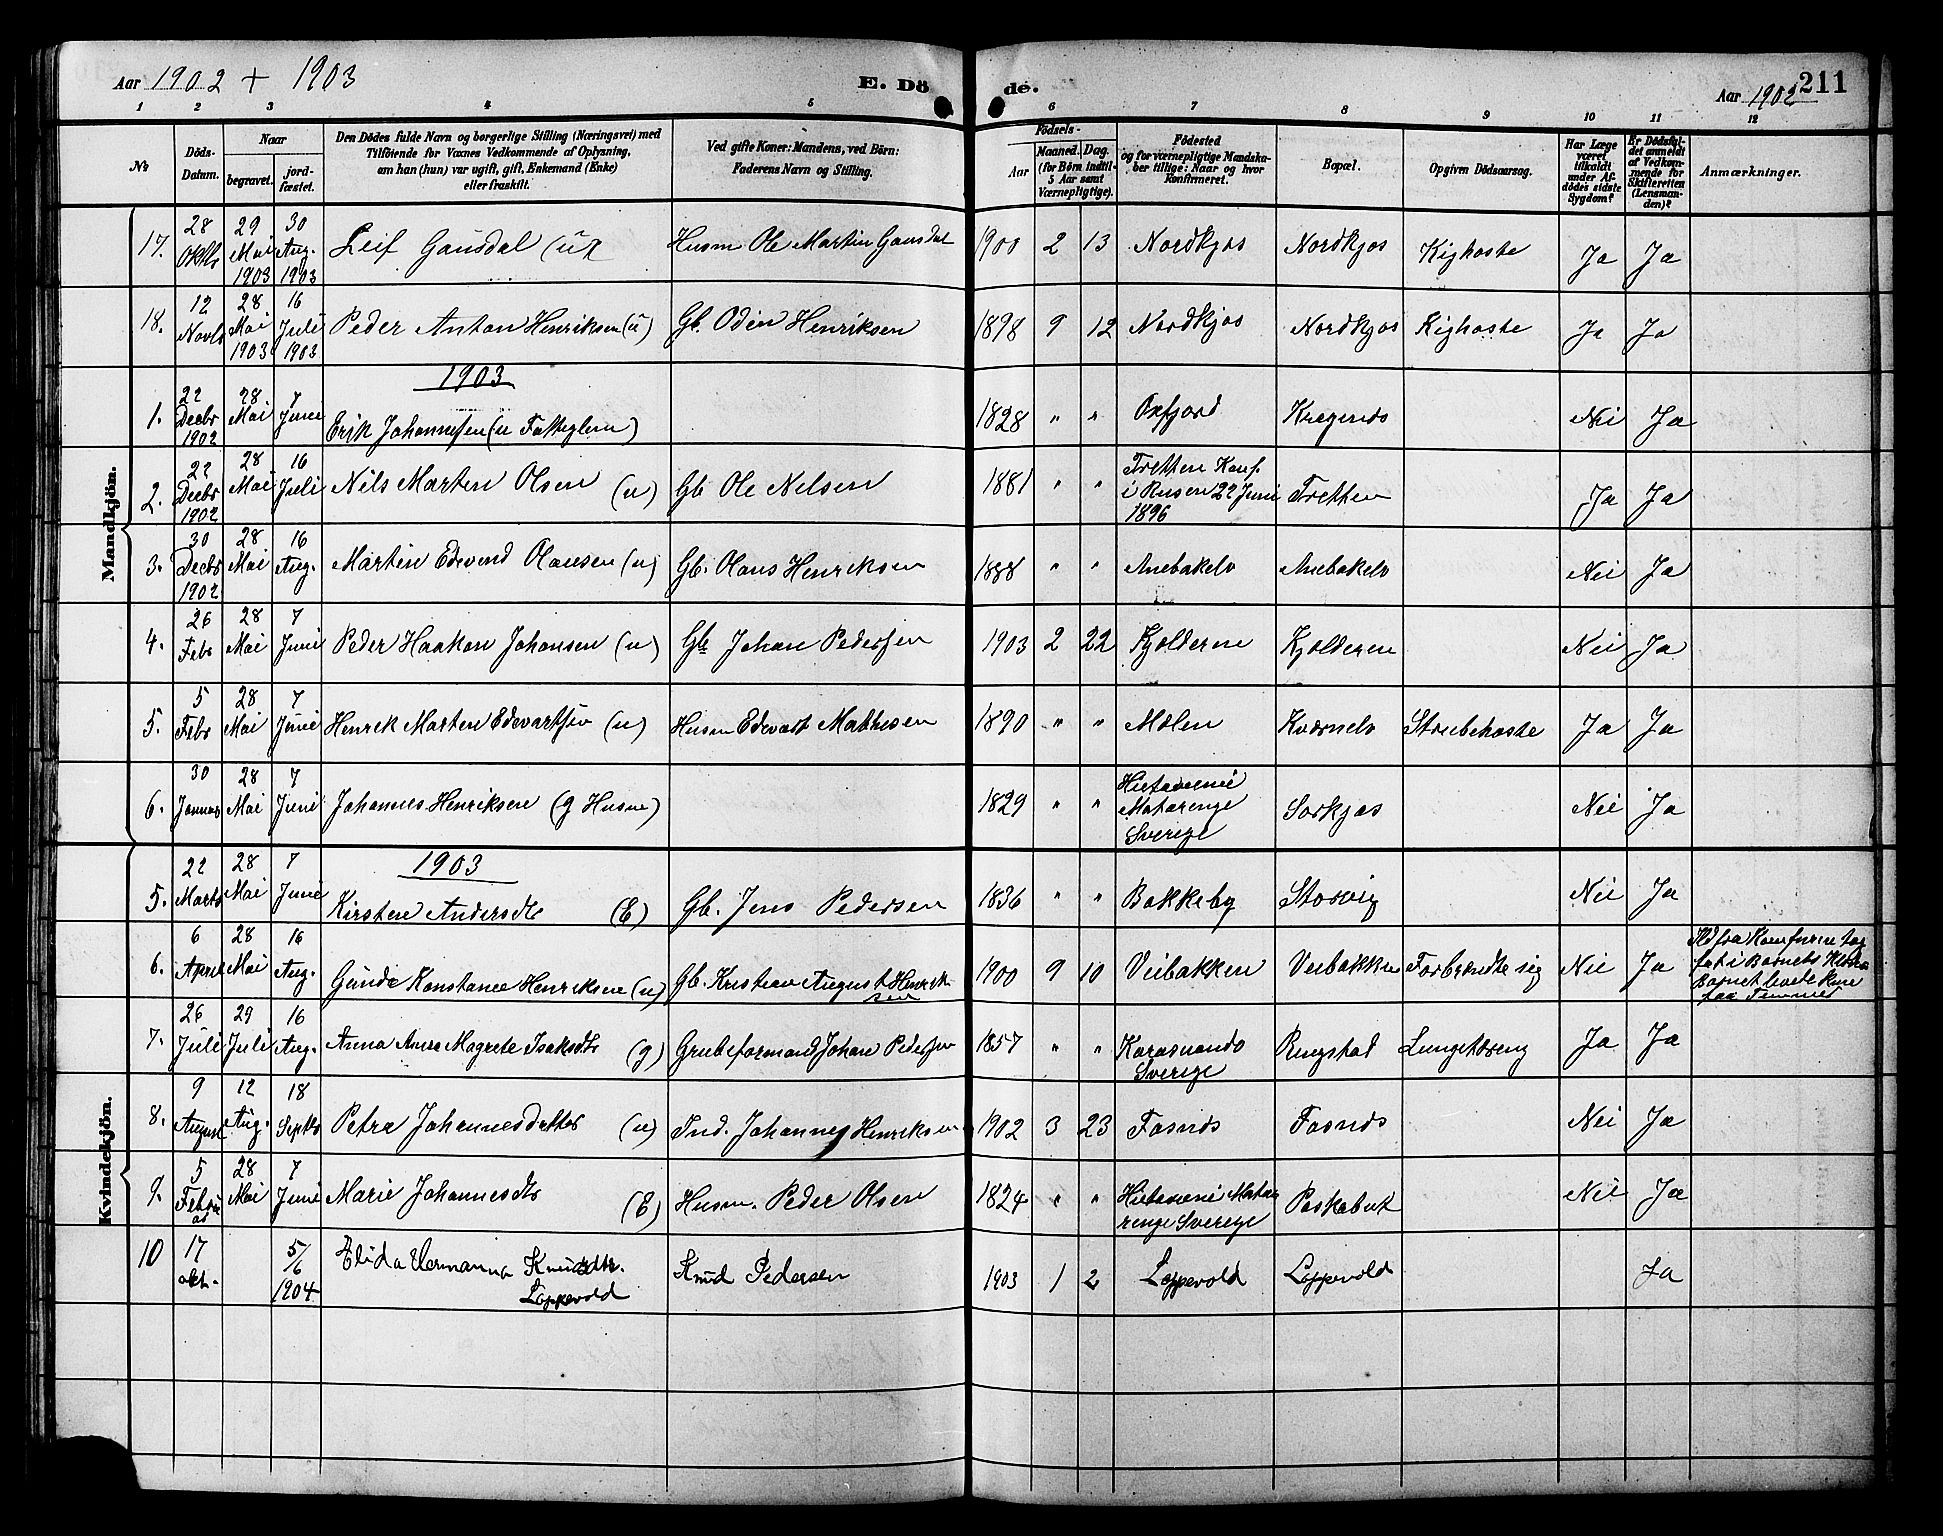 Aar 1902 + 1903 E. Dö de. Aar 1902 211
1 2 3 4 5 6 7 8 9 10 11 12
№ Döds-Datum. Naar begravet. jordfæstet. Den Dödes fulde Navn og borgerlige Stilling (Næringsvei) med Tilföiende for Voxnes Vedkommende af Oplysning, om han (hun) var ugift, gift, Enkemand (Enke) eller fraskilt. Ved gifte Koner: Mandens, ved Börn: Faderens Navn og Stilling. Födsels- Aar Maaned. Dag. (for Börn indtil 5 Aar samt Værnepligtige). Födested og for værnepligtige Mandskaber tillige: Naar og hvor Konfirmeret. Bopæl. Opgiven Dödsaarsag. Har Læge været tilkaldt under Afdödes sidste Sygdom? Er Dödsfaldet anmeldt af Vedkommende for Skifteretten (Lensmanden)? Anmærkninger.
Mandkjön.
17. 28 Oktbr 29 Mai 1903 30 Aug. 1903 Leif Gausdal (u) Husm Ole Martin Gausdal 1900 2 13 Nordkjos Nordkjos Kighoste Ja Ja
18. 12 Novbr 28 Mai 1903 16 Juli 1903 Peder Anton Henriksen (u) Gb. Odin Henriksen 1898 9 12 Nordkjos Nordkjos Kighoste Ja Ja
1903
1. 22 Decbr 1902 28 Mai 7 Juni Erik Johannesen (u Fatteglem) 1828 " " Oxfjord Kragenes Nei Ja
2. 22 Decbr 1902 28 Mai 16 Juli Nils Martin Olsen (u) Gb Ole Nilsen 1881 " " Tretten Konf. i 22 Juni 1896 Tretten Ja Ja
3. 30 Decbr 1902 28 Mai 16 Aug. Martin Edvend Olausen (u) Gb. Olaus Henriksen 1888 " " Anebakelv Anebakelv Nei Ja
4. 26 Febr 28 Mai 7 Juni Peder Haakon Johansen (u) Gb Johan Pedersen 1903 2 22 Kjolderen Kjolderen Nei Ja
5. 5 Febr 28 Mai 7 Juni Henrik Martin Edvartsen (u) Husm Edevart Mathisen 1890 " " Molen Kvernelv Strubehoste Ja Ja
6. 30 Januar 28 Mai 7 Juni Johannes Henriksen (g Husm) 1829 " " Hietaniemi Matarengi Sverige Sorkjos Nei Ja
Kvindekjön.
1903
5. 22 Marts 28 Mai 7 Juni Kirsten Andersdtr (E) Gb. Jens Pedersen 1836 " " Bakkeby Storvig Nei Ja
6. 6 April 28 Mai 16 Aug. Gunda Konstance Henriksen (u) Gb. Kristian August Henriksen 1900 9 10 Veibakken Veibakken Forbrændte sig Nei Ja Ild fra Komfuren tog fat i Barnets Klæder Barnet levede kun faa Timmer
7. 26 Juli 29 Juli 16 Aug. Anna Anne Magrete Isaksdtr (g) Grubeformand Johan Pedersen 1857 " " Karasuando Sverige Ringstad Lungetæring Ja Ja
8. 9 August 12 Aug. 18 Septbr Petra Johannesdatter (u) Ind. Johannes Henriksen 1902 3 23 Fosnes Fosnes Nei Ja
9. 5 Februar 28 Mai 7 Juni Marie Johannesdtr (E) Husm. Peder Olsen 1824 " " Hietaniemi Matarengi Sverige Poskabuk Nei Ja
10 17 okt. 5/6 1904 Elida Hermanna Knudsdtr. Loppevold Knud Pedersen 1903 1 2 Loppevold Loppevold Ja